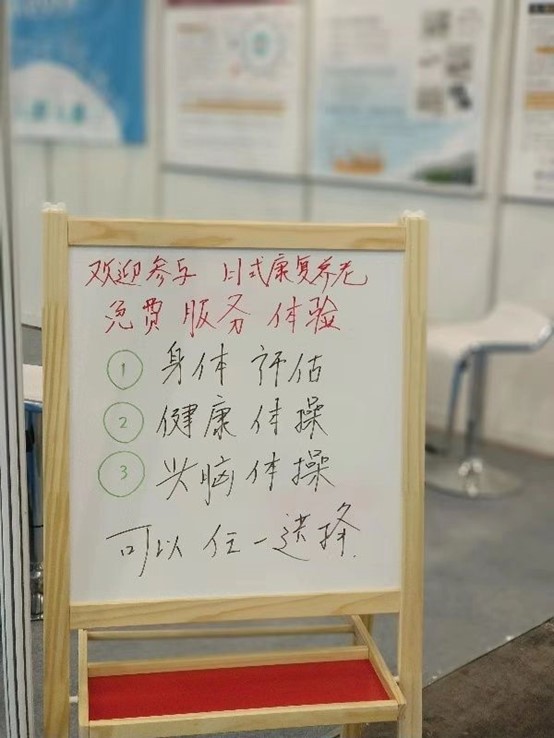 欢迎参与 日式康复养老
免費 服务 体验
① 身体 評估
② 健康 体操
③ 头脑 体操
可以 任一选择